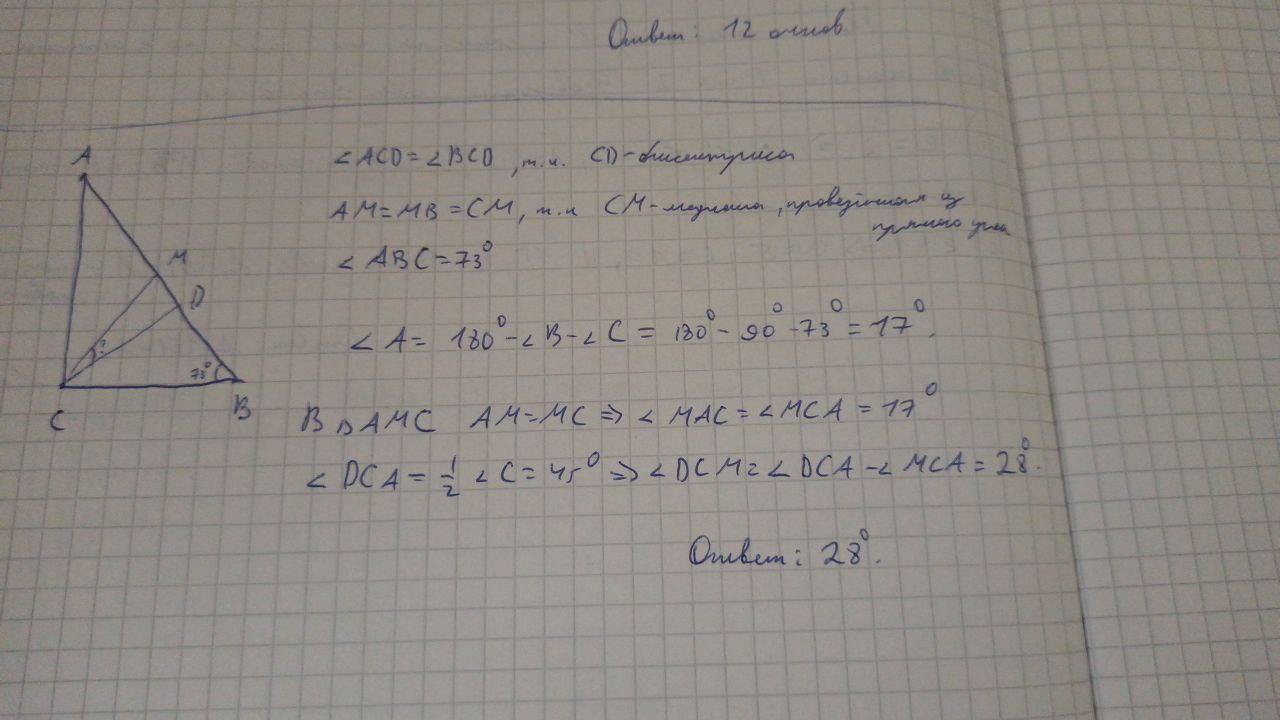 Ответ: 12 очков.
A
M
D
?
73°
C
B
∠ACD = ∠BCD, т.к. CD - биссектриса
AM = MB = CM, т.к CM - медиана, проведённая из
прямого угла
∠ABC = 73°
∠A = 180° - ∠B - ∠C = 180° - 90° - 73° = 17°.
В △AMC AM = MC ⇒ ∠MAC = ∠MCA = 17°
∠DCA = 1/2 ∠C = 45° ⇒ ∠DCM = ∠DCA - ∠MCA = 28°.
Ответ: 28°.